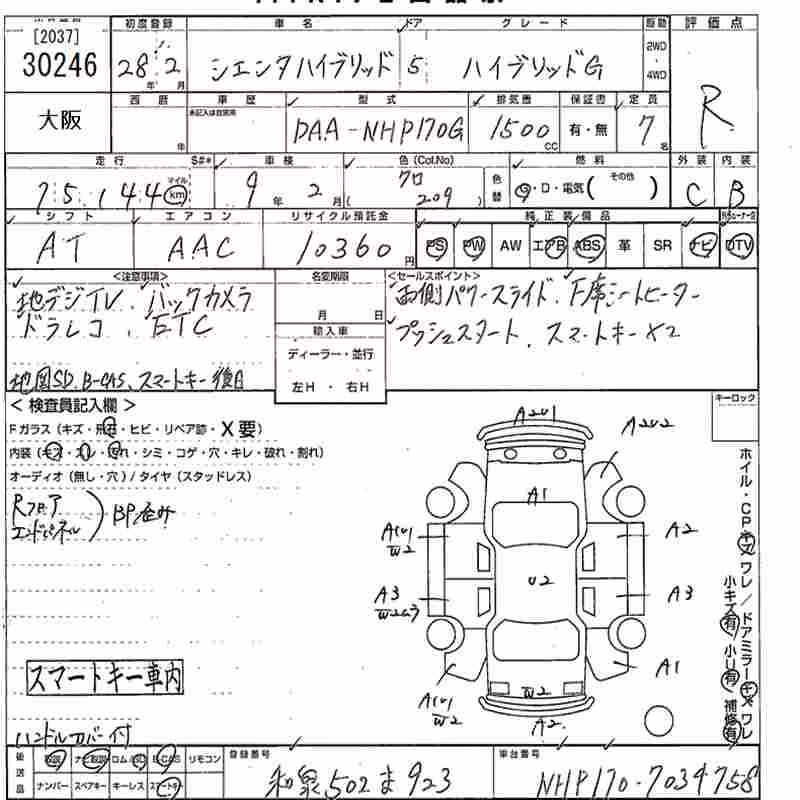 [2037]
30246
大阪
初度登録 車名 ドア グレード 駆動 評価点
28年2月 シエンタハイブリッド 5 ハイブリッドG 2WD・4WD R
西暦 車歴 型式 排気量 保証書 定員
年 未記入は自家用 DAA-NHP170G 1500cc 有・無 7名
走行 S#* 車検 色(Col.No) 燃料 外装 内装
75,144 マイル km 9年2月 クロ (209) 色替 G・D・電気(その他) C B
シフト エアコン リサイクル預託金 純正装備品
AT AAC 10360円 PS PW AW エアB ABS 革 SR ナビ DTV
<注意事項> 名変期限 <セールスポイント>
地デジTV、バックカメラ
ドラレコ、ETC
地図SD、B-CAS、スマートキー後日
月 日
輸入車
ディーラー・並行
左H・右H
両側パワースライド、F席シートヒーター
プッシュスタート、スマートキー×2
<検査員記入欄> キーロック
Fガラス(キズ・飛石・ヒビ・リペア跡・X要)
内装(キズ・スレ・汚れ・シミ・コゲ・穴・キレ・破れ・割れ)
オーディオ(無し・穴)/タイヤ(スタッドレス)
Rフロア
エンドパネル
BP歪み
スマートキー車内
ハンドルカバー付
A2U1
A2U2
A1
A1U1
W2
A2
U2
A3
A3
A1
A1U1
W2
W2
A2
ホイル・CPキズ ワレ/ドアミラーキズ ワレ
小キズ有 小U有 補修有
後送品 取説 ナビ取説 ロム/SD B-CAS リモコン
ナンバー スペアキー キーレス スマートキー
登録番号 和泉502ま923
車台番号 NHP170-7034758